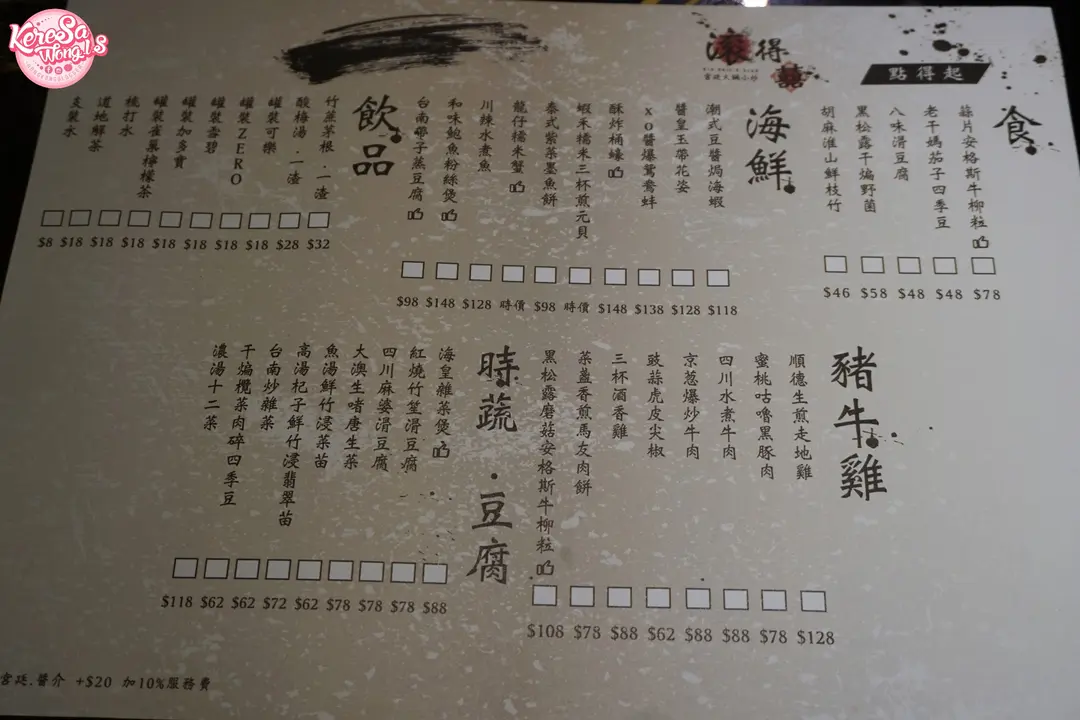 KereSa
Wong!S
滾得
宮廷火鍋小炒
點得起
食
蒜片安格斯牛柳粒
$78
老干媽茄子四季豆
$48
八味滑豆腐
$48
黑松露干煸野菌
$58
胡麻淮山鮮枝竹
$46
海鮮
潮式豆醬焗海蝦
$118
醬皇玉帶花姿
$128
xo醬爆鴛鴦蚌
$138
酥炸桶蠔
$148
蝦禾糯米三杯煎元貝
時價
泰式紫菜墨魚餅
$98
龍仔糯米蟹
時價
川辣水煮魚
$128
和味鮑魚粉絲煲
$148
台南帶子蒸豆腐
$98
飲品
竹蔗茅根．一渣
$32
酸梅湯．一渣
$28
罐裝可樂
$18
罐裝ZERO
$18
罐裝雪碧
$18
罐裝加多寶
$18
罐裝雀巢檸檬茶
$18
樽打水
$18
道地解茶
$18
支裝水
$8
豬牛雞
順德生煎走地雞
$128
蜜桃咕嚕黑豚肉
$78
四川水煮牛肉
$88
京葱爆炒牛肉
$88
豉蒜虎皮尖椒
$62
三杯酒香雞
$88
菜盞香煎馬友肉餅
$78
黑松露磨菇安格斯牛柳粒
$108
時蔬．豆腐
海皇雜菜煲
$88
紅燒竹笙滑豆腐
$78
四川麻婆滑豆腐
$78
大澳生啫唐生菜
$78
魚湯鮮竹浸菜苗
$62
高湯杞子鮮竹浸翡翠苗
$72
台南炒雜菜
$62
干煸欖菜肉碎四季豆
$62
濃湯十二茶
$118
宮廷．醬介 +$20 加10%服務費